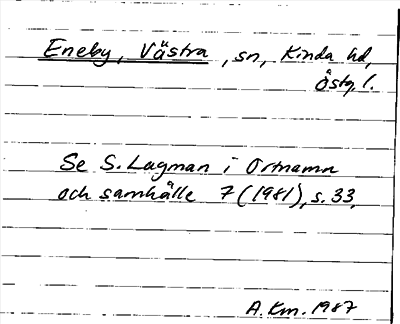 Eneby, Västra, sn, Kinda hd,
Östg. l.
Se S. Lagman i Ortnamn
och samhälle 7 (1981), s. 33.
A. Km. 1987